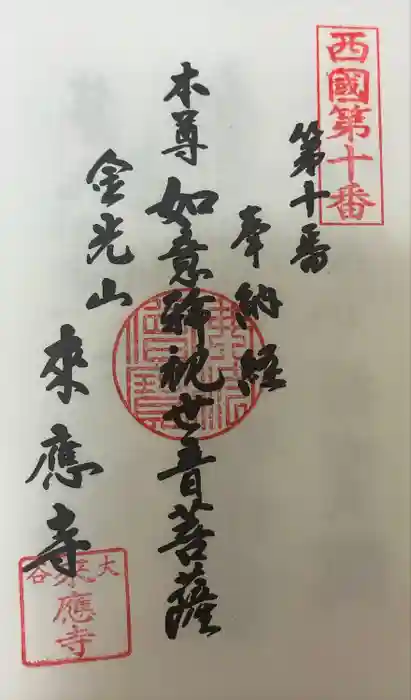 西國第十番
第十番
奉納経
本尊
如意輪観世音菩薩
金光山
來應寺
大谷
來應寺